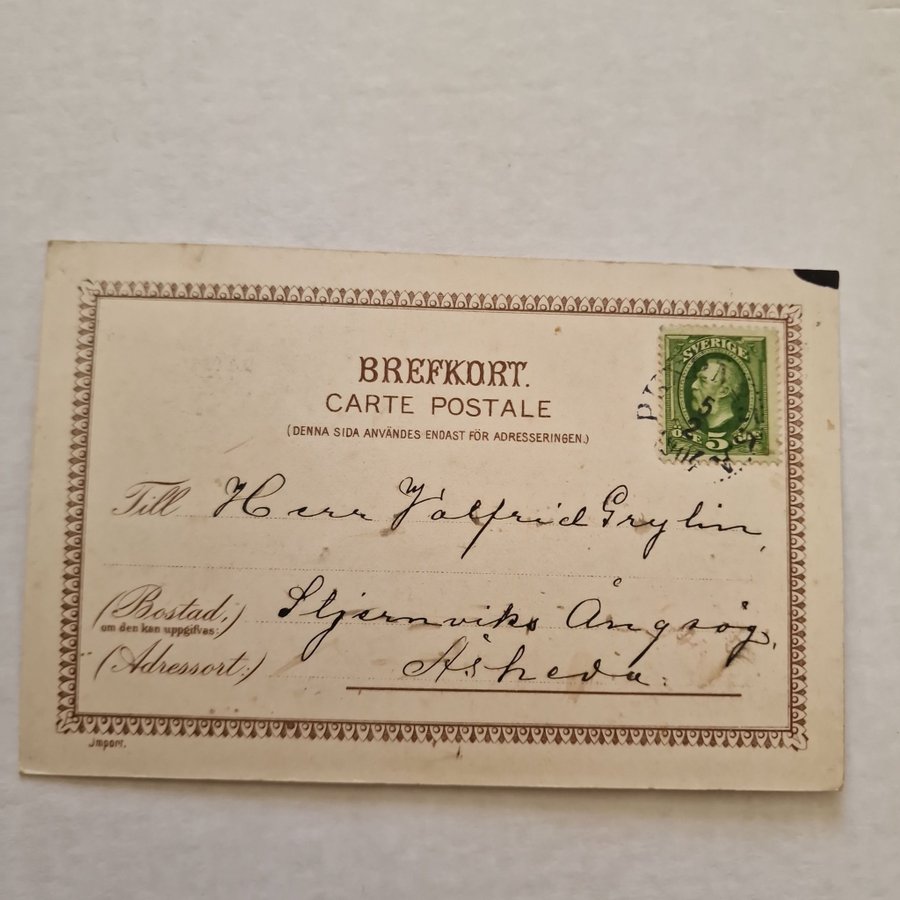 BREFKORT.
CARTE POSTALE
(DENNA SIDA ANVÄNDES ENDAST FÖR ADRESSERINGEN.)
SVERIGE
5
ÖRE 5
Till Herr Valfrid Grylin,
(Bostad,) Stjernviks Ångsåg,
om den kan uppgifvas:
(Adressort:) Åsheda.
Import.